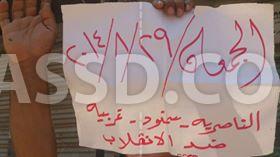 الجمعة ٢٩/٨/٢٠١٤
الناصرية - سمنود - غربية
ضد الانقلاب
ASSD.CO